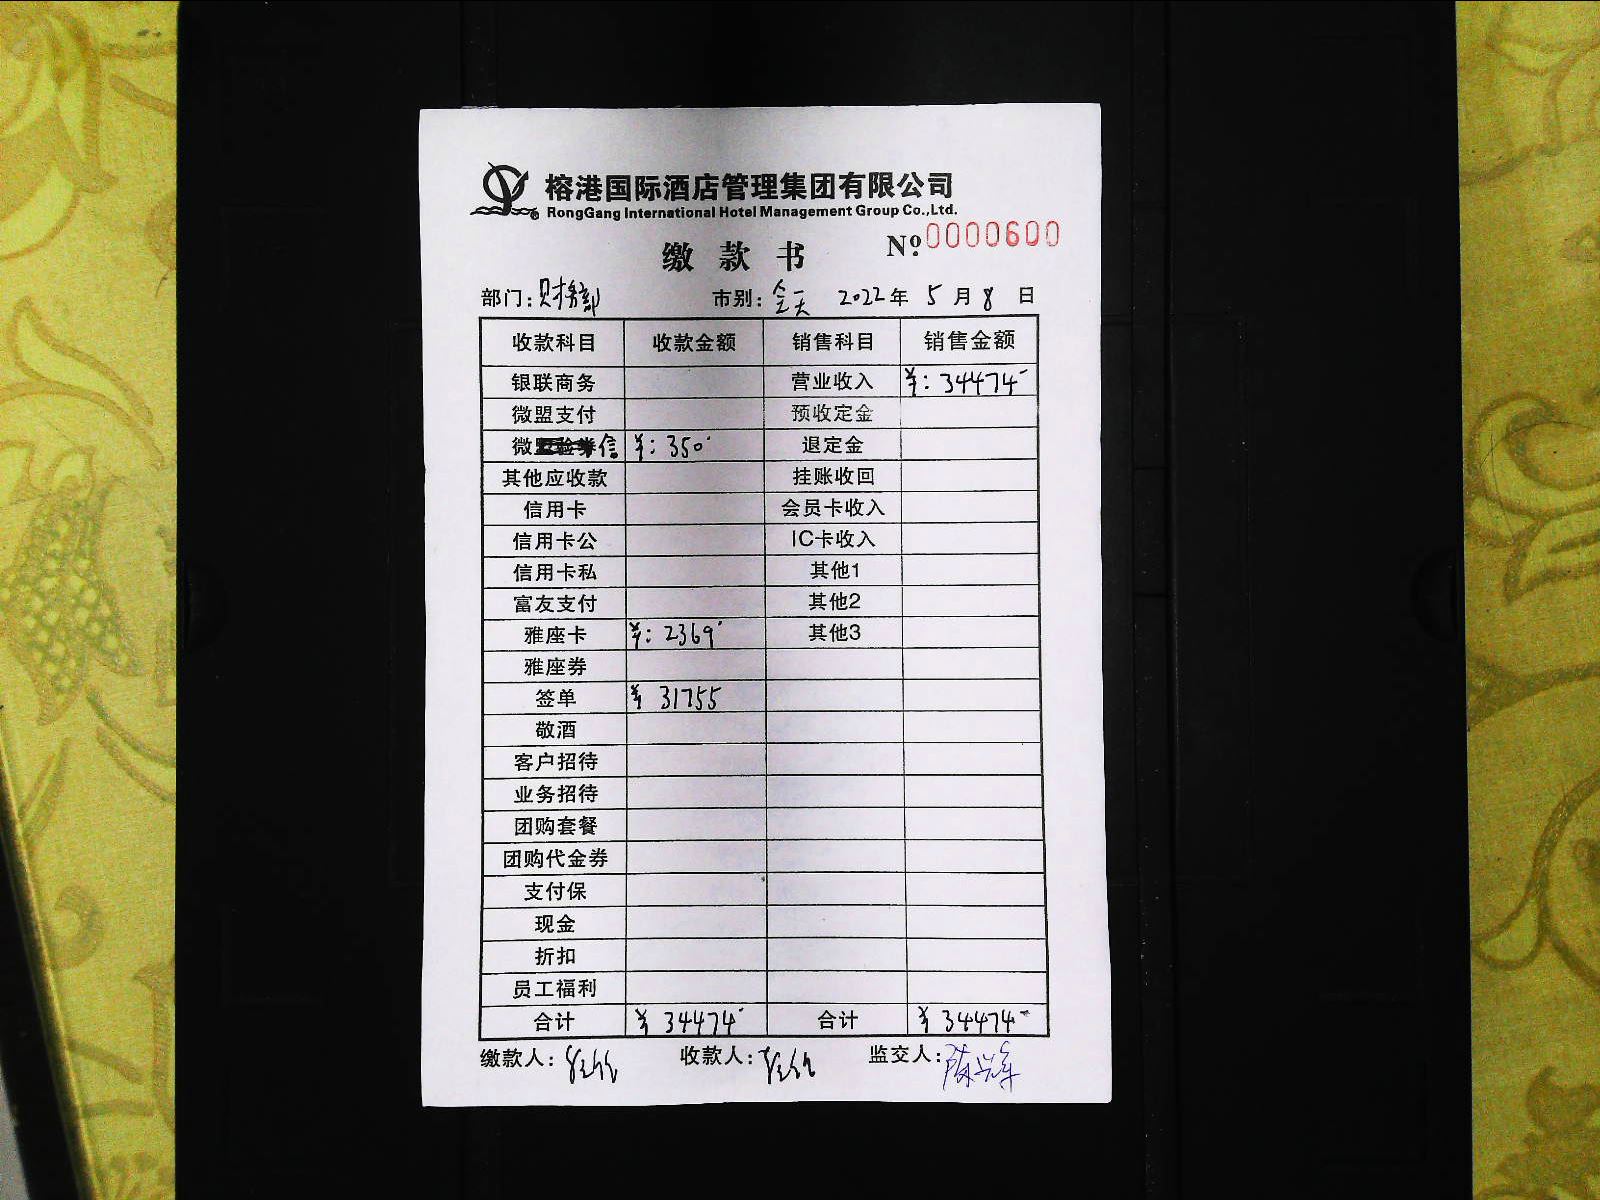 榕港国际酒店管理集团有限公司
RongGang International Hotel Management Group Co.,Ltd.
缴款书 Nº 0000600
部门:财务部 市别:全天 2022年 5月 8日
收款科目 收款金额 销售科目 销售金额
银联商务 营业收入 ¥: 34474-
微盟支付 预收定金
微信 ¥: 350 退定金
其他应收款 挂账收回
信用卡 会员卡收入
信用卡公 IC卡收入
信用卡私 其他1
富友支付 其他2
雅座卡 ¥: 2369 其他3
雅座券
签单 ¥ 31755
敬酒
客户招待
业务招待
团购套餐
团购代金券
支付保
现金
折扣
员工福利
合计 ¥ 34474- 合计 ¥ 34474-
缴款人: 收款人: 监交人: